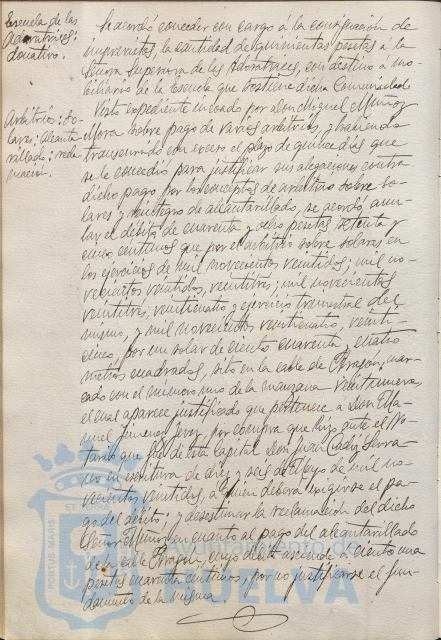 Escuela de las
Adoratrices:
donativo.
Se acordó conceder con cargo á la consignación de
imprevistos, la cantidad de quinientas pesetas á la
Señora Superiora de las Adoratrices, con destino á mo-
biliario de la Escuela que sostiene dicha Comunidad
Arbitrios: So-
lares: Alcanta-
rillado; recla-
mación.
Visto expediente incoado por don Miguel Muñoz
Mora sobre pago de varios arbitrios, y habiendo
transcurrido con exceso el plazo de quince días que
se le concedió para justificar sus alegaciones contra
dicho pago por los conceptos de arbitrio sobre so-
lares y reintegro de alcantarillado, se acordó, anu-
lar el débito de cuarenta y ocho pesetas setenta y
cinco céntimos que por el arbitrio sobre solares en
los ejercicios de mil novecientos veintidos; mil no-
vecientos veintidos, veintitres; mil novecientos
veintitres, veinticuatro y ejercicio trimestral del
mismo, y mil novecientos veinticuatro, veinti-
cinco, por un solar de ciento cuarenta y cuatro
metros cuadrados, sito en la calle de Aragón, mar-
cado con el número uno de la manzana veintinueve,
el cual aparece justificado que pertenece á Don Ma-
nuel Jimenez Jerez, por compra que hizo ante el No-
tario que fué de esta Capital Don Juan Cádiz Serra-
no en escritura de diez y seis de Mayo de mil no-
vecientos veintidos, á quien deberá exigirse el pa-
go del débito; y desestimar la reclamación del dicho
Señor Muñoz en cuanto al pago del alcantarillado
de la calle Aragón, cuyo débito asciende á ciento una
pesetas cuarenta céntimos, por no justificarse el fun-
damento de la misma.
PORTUS MARIS
ET TERRÆ
Ayuntamiento de
HUELVA